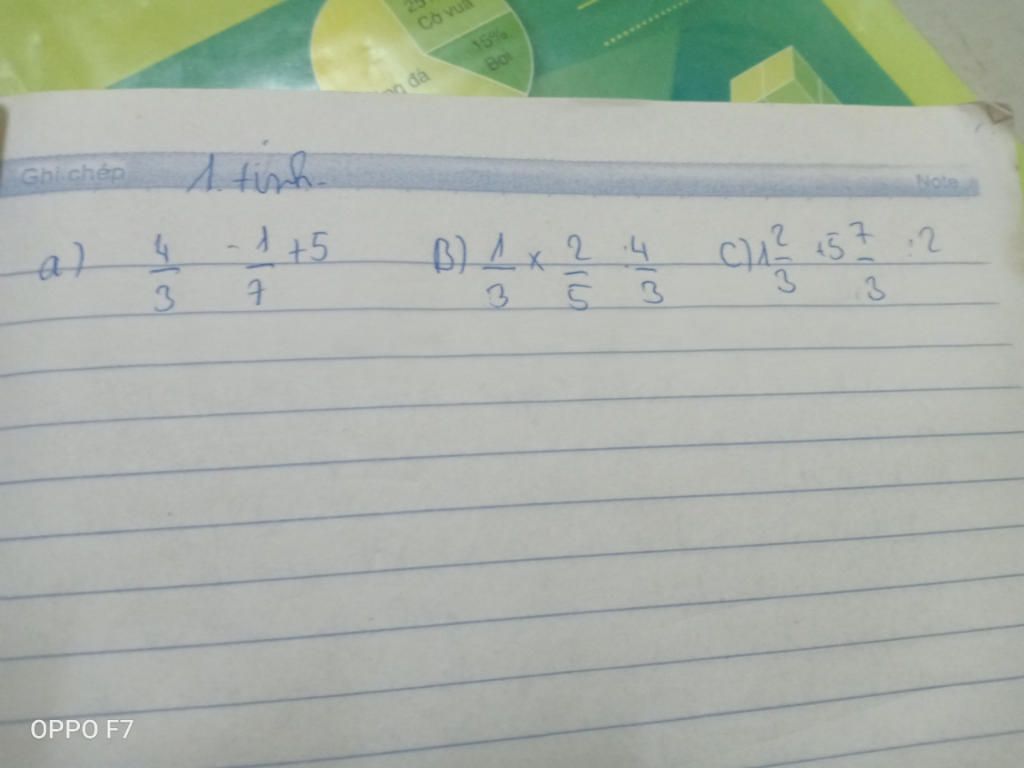 25%
Cờ vua
15%
Bơi
ng đá
Ghi chép 1. tính. Note
a) 4/3 - 1/7 + 5 B) 1/3 x 2/5 : 4/3 C) 1 2/3 + 5 7/3 : 2
OPPO F7